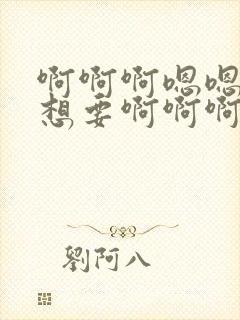 啊啊啊嗯嗯
想要啊啊啊
劉阿八